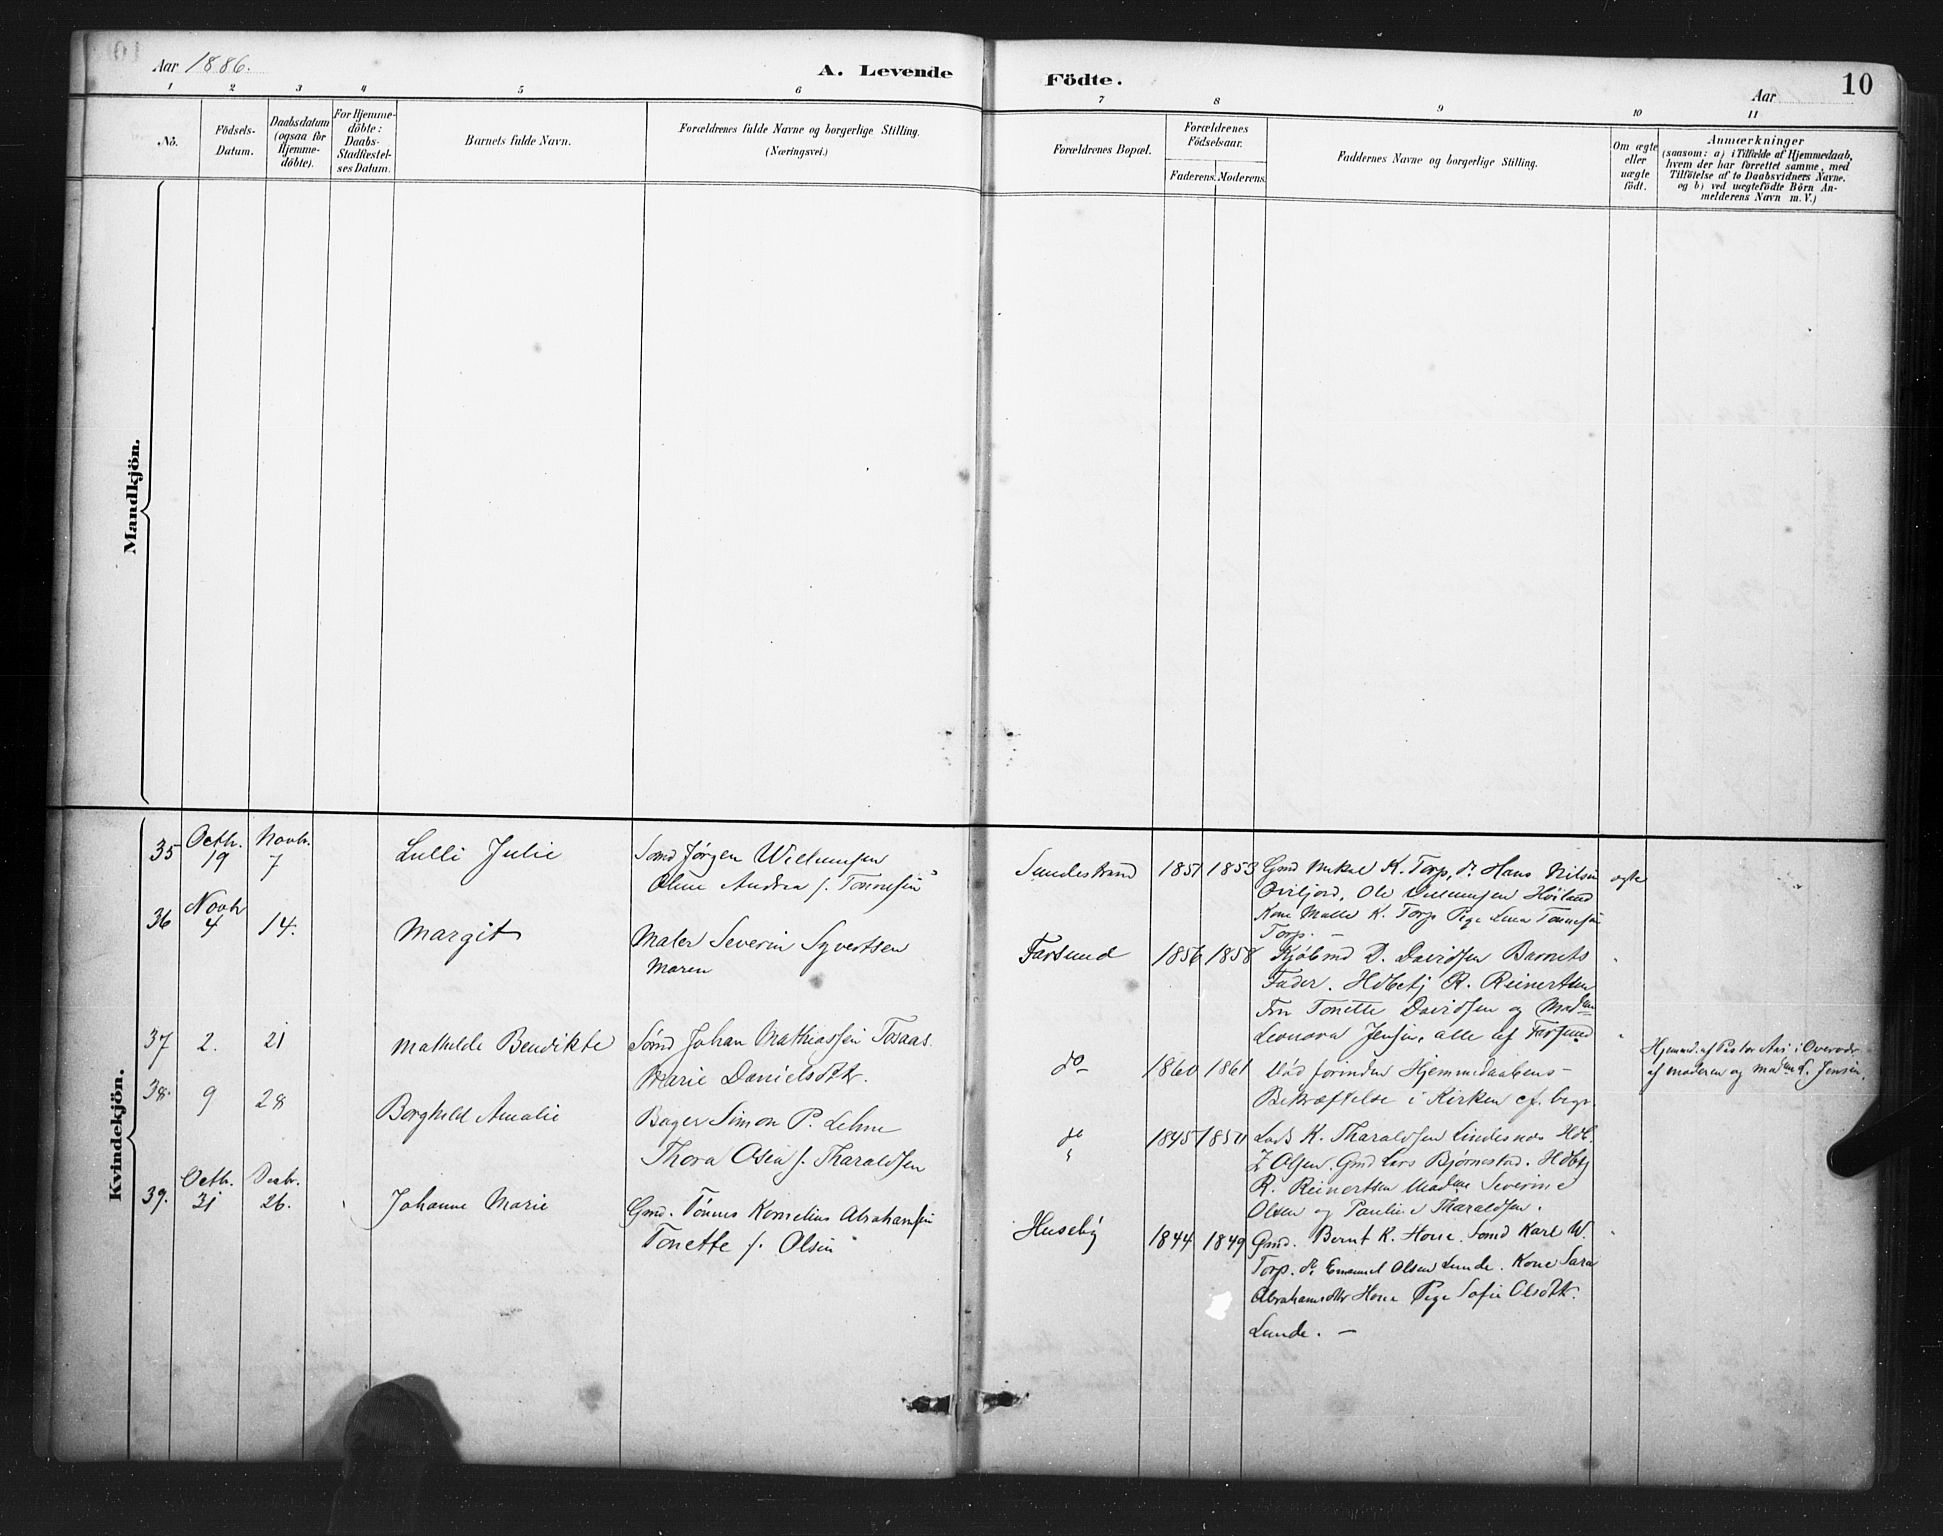 Aar 1886.
A. Levende
Födte.
Aar
10
1 2 3 4 5 6 7 8 9 10 11
No.
Födsels-
Datum.
Daabsdatum
(ogsaa for
Hjemme-
döbte).
For Hjemme-
döbte:
Daabs-
Stadfæstel-
ses Datum.
Barnets fulde Navn.
Forældrenes fulde Navne og borgerlige Stilling.
(Næringsvei.)
Forældrenes Bopæl.
Forældrenes
Födselsaar.
Faderens. Moderens.
Faddernes Navne og borgerlige Stilling.
Om ægte
eller
uægte
födt.
Anmærkninger
(saasom: a) i Tilfælde af Hjemmedaab,
hvem der har forrettet samme, med
Tilföielse af to Daabsvidners Navne.
og b) ved uægtefödte Börn An-
melderens Navn m. V.)
Mandkjön.
Kvindekjön.
35
Octbr.
19
Novbr.
7
Lulli Julie
Sømd Jørgen Willumsen
Oline Andrea f. Tønnesen
Sundestrand
1851
1853
Gmd Mikal K. Torp, do Hans Nilsen
Ore Ole Willumsen Høiland
Kone Malle K. Torp Pige Lina Tønnesen
Torp. —
ægte
36
Novbr
4
14.
Margit
Maler Severin Syvertsen
Maren
Farsund
1856
1858
Kjøbmd D. Davidsen Barnets
Fader. Hdbetj R. Reinertsen
Fru Tonette Davidsen og Madam
Leonora Jensen, alle af Farsund
37
2.
21
Mathilde Bendikte
Sømd Johan Mathiassen Tosaas
Marie Danielsdtr.
do
1860
1861
Død forinden Hjemmedaabens-
Bekræftelse i Kirken cf. begr.
Hjemmd. af Pastor Aas i Overvær
af moderen og madm L. Jensen.
38.
9
28
Borghild Amalie
Bager Simon P. Lehne
Thora Osea f. Tharaldsen
do
1845
1850
Lods K. Tharaldsen Lindesnes Hdb.
Z Olsen. Gmd Lars Bjørnestad. Hdbtj
R. Reinertsen Madme Severine
Olsen og Pauline Tharaldsen.
39.
Octbr.
31
Decbr.
26.
Johanne Marie
Gmd. Tønnes Kornelius Abrahamsen
Tonette f. Olsen
Huseby
1844
1849
Gmd. Bernt K. Hone. Sømd Karl W.
Torp. do Emanuel Olsen Lunde. Kone Sara
Abrahamsdtr Hone Pige Sofie Olsdtr.
Lunde. —